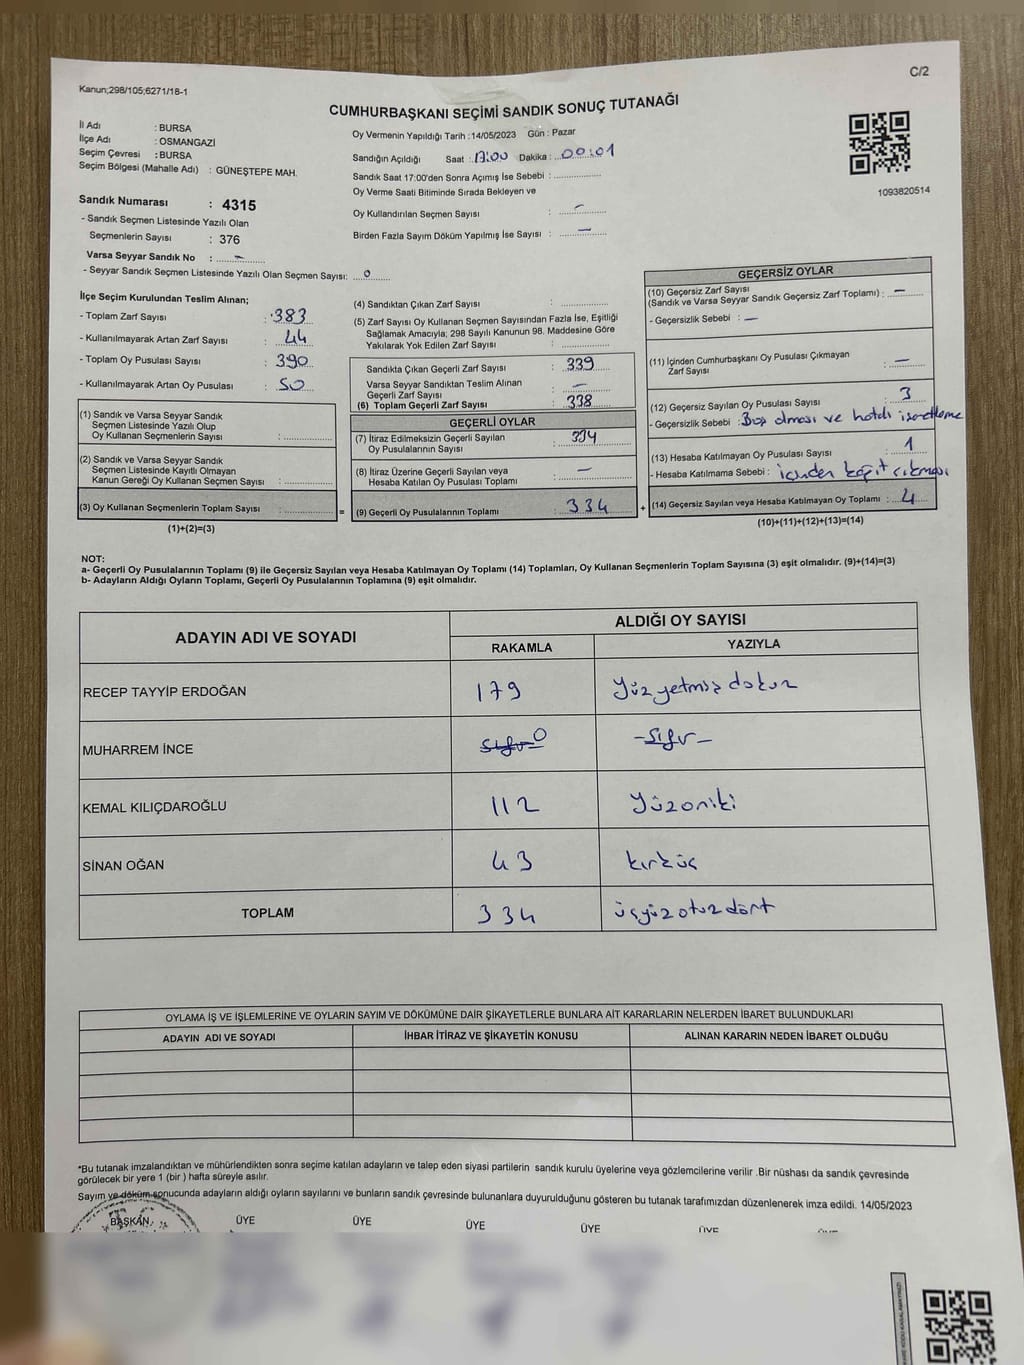 C/2
Kanun;298/105;6271/18-1
CUMHURBAŞKANI SEÇİMİ SANDIK SONUÇ TUTANAĞI
İl Adı : BURSA
İlçe Adı : OSMANGAZİ
Seçim Çevresi : BURSA
Seçim Bölgesi (Mahalle Adı) : GÜNEŞTEPE MAH.
Sandık Numarası : 4315
- Sandık Seçmen Listesinde Yazılı Olan
Seçmenlerin Sayısı : 376
Varsa Seyyar Sandık No : –
- Seyyar Sandık Seçmen Listesinde Yazılı Olan Seçmen Sayısı: 0
Oy Vermenin Yapıldığı Tarih :14/05/2023 Gün : Pazar
Sandığın Açıldığı Saat : 17:00 Dakika : 00:01
Sandık Saat 17:00'den Sonra Açımış İse Sebebi :
Oy Verme Saati Bitiminde Sırada Bekleyen ve
Oy Kullandırılan Seçmen Sayısı : –
Birden Fazla Sayım Döküm Yapılmış İse Sayısı : –
1093820514
İlçe Seçim Kurulundan Teslim Alınan;
- Toplam Zarf Sayısı : 383
- Kullanılmayarak Artan Zarf Sayısı : 44
- Toplam Oy Pusulası Sayısı : 390
- Kullanılmayarak Artan Oy Pusulası : 50
(1) Sandık ve Varsa Seyyar Sandık
Seçmen Listesinde Yazılı Olup
Oy Kullanan Seçmenlerin Sayısı :
(2) Sandık ve Varsa Seyyar Sandık
Seçmen Listesinde Kayıtlı Olmayan
Kanun Gereği Oy Kullanan Seçmen Sayısı :
(3) Oy Kullanan Seçmenlerin Toplam Sayısı :
(1)+(2)=(3)
(4) Sandıktan Çıkan Zarf Sayısı :
(5) Zarf Sayısı Oy Kullanan Seçmen Sayısından Fazla İse, Eşitliği
Sağlamak Amacıyla; 298 Sayılı Kanunun 98. Maddesine Göre
Yakılarak Yok Edilen Zarf Sayısı :
Sandıkta Çıkan Geçerli Zarf Sayısı : 339
Varsa Seyyar Sandıktan Teslim Alınan
Geçerli Zarf Sayısı : –
(6) Toplam Geçerli Zarf Sayısı : 338
GEÇERLİ OYLAR
(7) İtiraz Edilmeksizin Geçerli Sayılan
Oy Pusulalarının Sayısı : 334
(8) İtiraz Üzerine Geçerli Sayılan veya
Hesaba Katılan Oy Pusulası Toplamı : –
= (9) Geçerli Oy Pusulalarının Toplamı : 334 +
GEÇERSİZ OYLAR
(10) Geçersiz Zarf Sayısı
(Sandık ve Varsa Seyyar Sandık Geçersiz Zarf Toplamı) : –
- Geçersizlik Sebebi : –
(11) İçinden Cumhurbaşkanı Oy Pusulası Çıkmayan
Zarf Sayısı : –
(12) Geçersiz Sayılan Oy Pusulası Sayısı : 3
- Geçersizlik Sebebi : Boş olması ve hatalı işaretleme
(13) Hesaba Katılmayan Oy Pusulası Sayısı : 1
- Hesaba Katılmama Sebebi : içinden kağıt çıkması
(14) Geçersiz Sayılan veya Hesaba Katılmayan Oy Toplamı : 4
(10)+(11)+(12)+(13)=(14)
NOT:
a- Geçerli Oy Pusulalarının Toplamı (9) ile Geçersiz Sayılan veya Hesaba Katılmayan Oy Toplamı (14) Toplamları, Oy Kullanan Seçmenlerin Toplam Sayısına (3) eşit olmalıdır. (9)+(14)=(3)
b- Adayların Aldığı Oyların Toplamı, Geçerli Oy Pusulalarının Toplamına (9) eşit olmalıdır.
ADAYIN ADI VE SOYADI ALDIĞI OY SAYISI
RAKAMLA YAZIYLA
RECEP TAYYİP ERDOĞAN 179 Yüz yetmiş dokuz
MUHARREM İNCE sıfır 0 -sıfır-
KEMAL KILIÇDAROĞLU 112 Yüzoniki
SİNAN OĞAN 43 kırküç
TOPLAM 334 üçyüzotuzdört
OYLAMA İŞ VE İŞLEMLERİNE VE OYLARIN SAYIM VE DÖKÜMÜNE DAİR ŞİKAYETLERLE BUNLARA AİT KARARLARIN NELERDEN İBARET BULUNDUKLARI
ADAYIN ADI VE SOYADI İHBAR İTİRAZ VE ŞİKAYETİN KONUSU ALINAN KARARIN NEDEN İBARET OLDUĞU
*Bu tutanak imzalandıktan ve mühürlendikten sonra seçime katılan adayların ve talep eden siyasi partilerin sandık kurulu üyelerine veya gözlemcilerine verilir .Bir nüshası da sandık çevresinde
görülecek bir yere 1 (bir ) hafta süreyle asılır.
Sayım ve döküm sonucunda adayların aldığı oyların sayılarını ve bunların sandık çevresinde bulunanlara duyurulduğunu gösteren bu tutanak tarafımızdan düzenlenerek imza edildi. 14/05/2023
BAŞKAN ÜYE ÜYE ÜYE ÜYE ÜYE